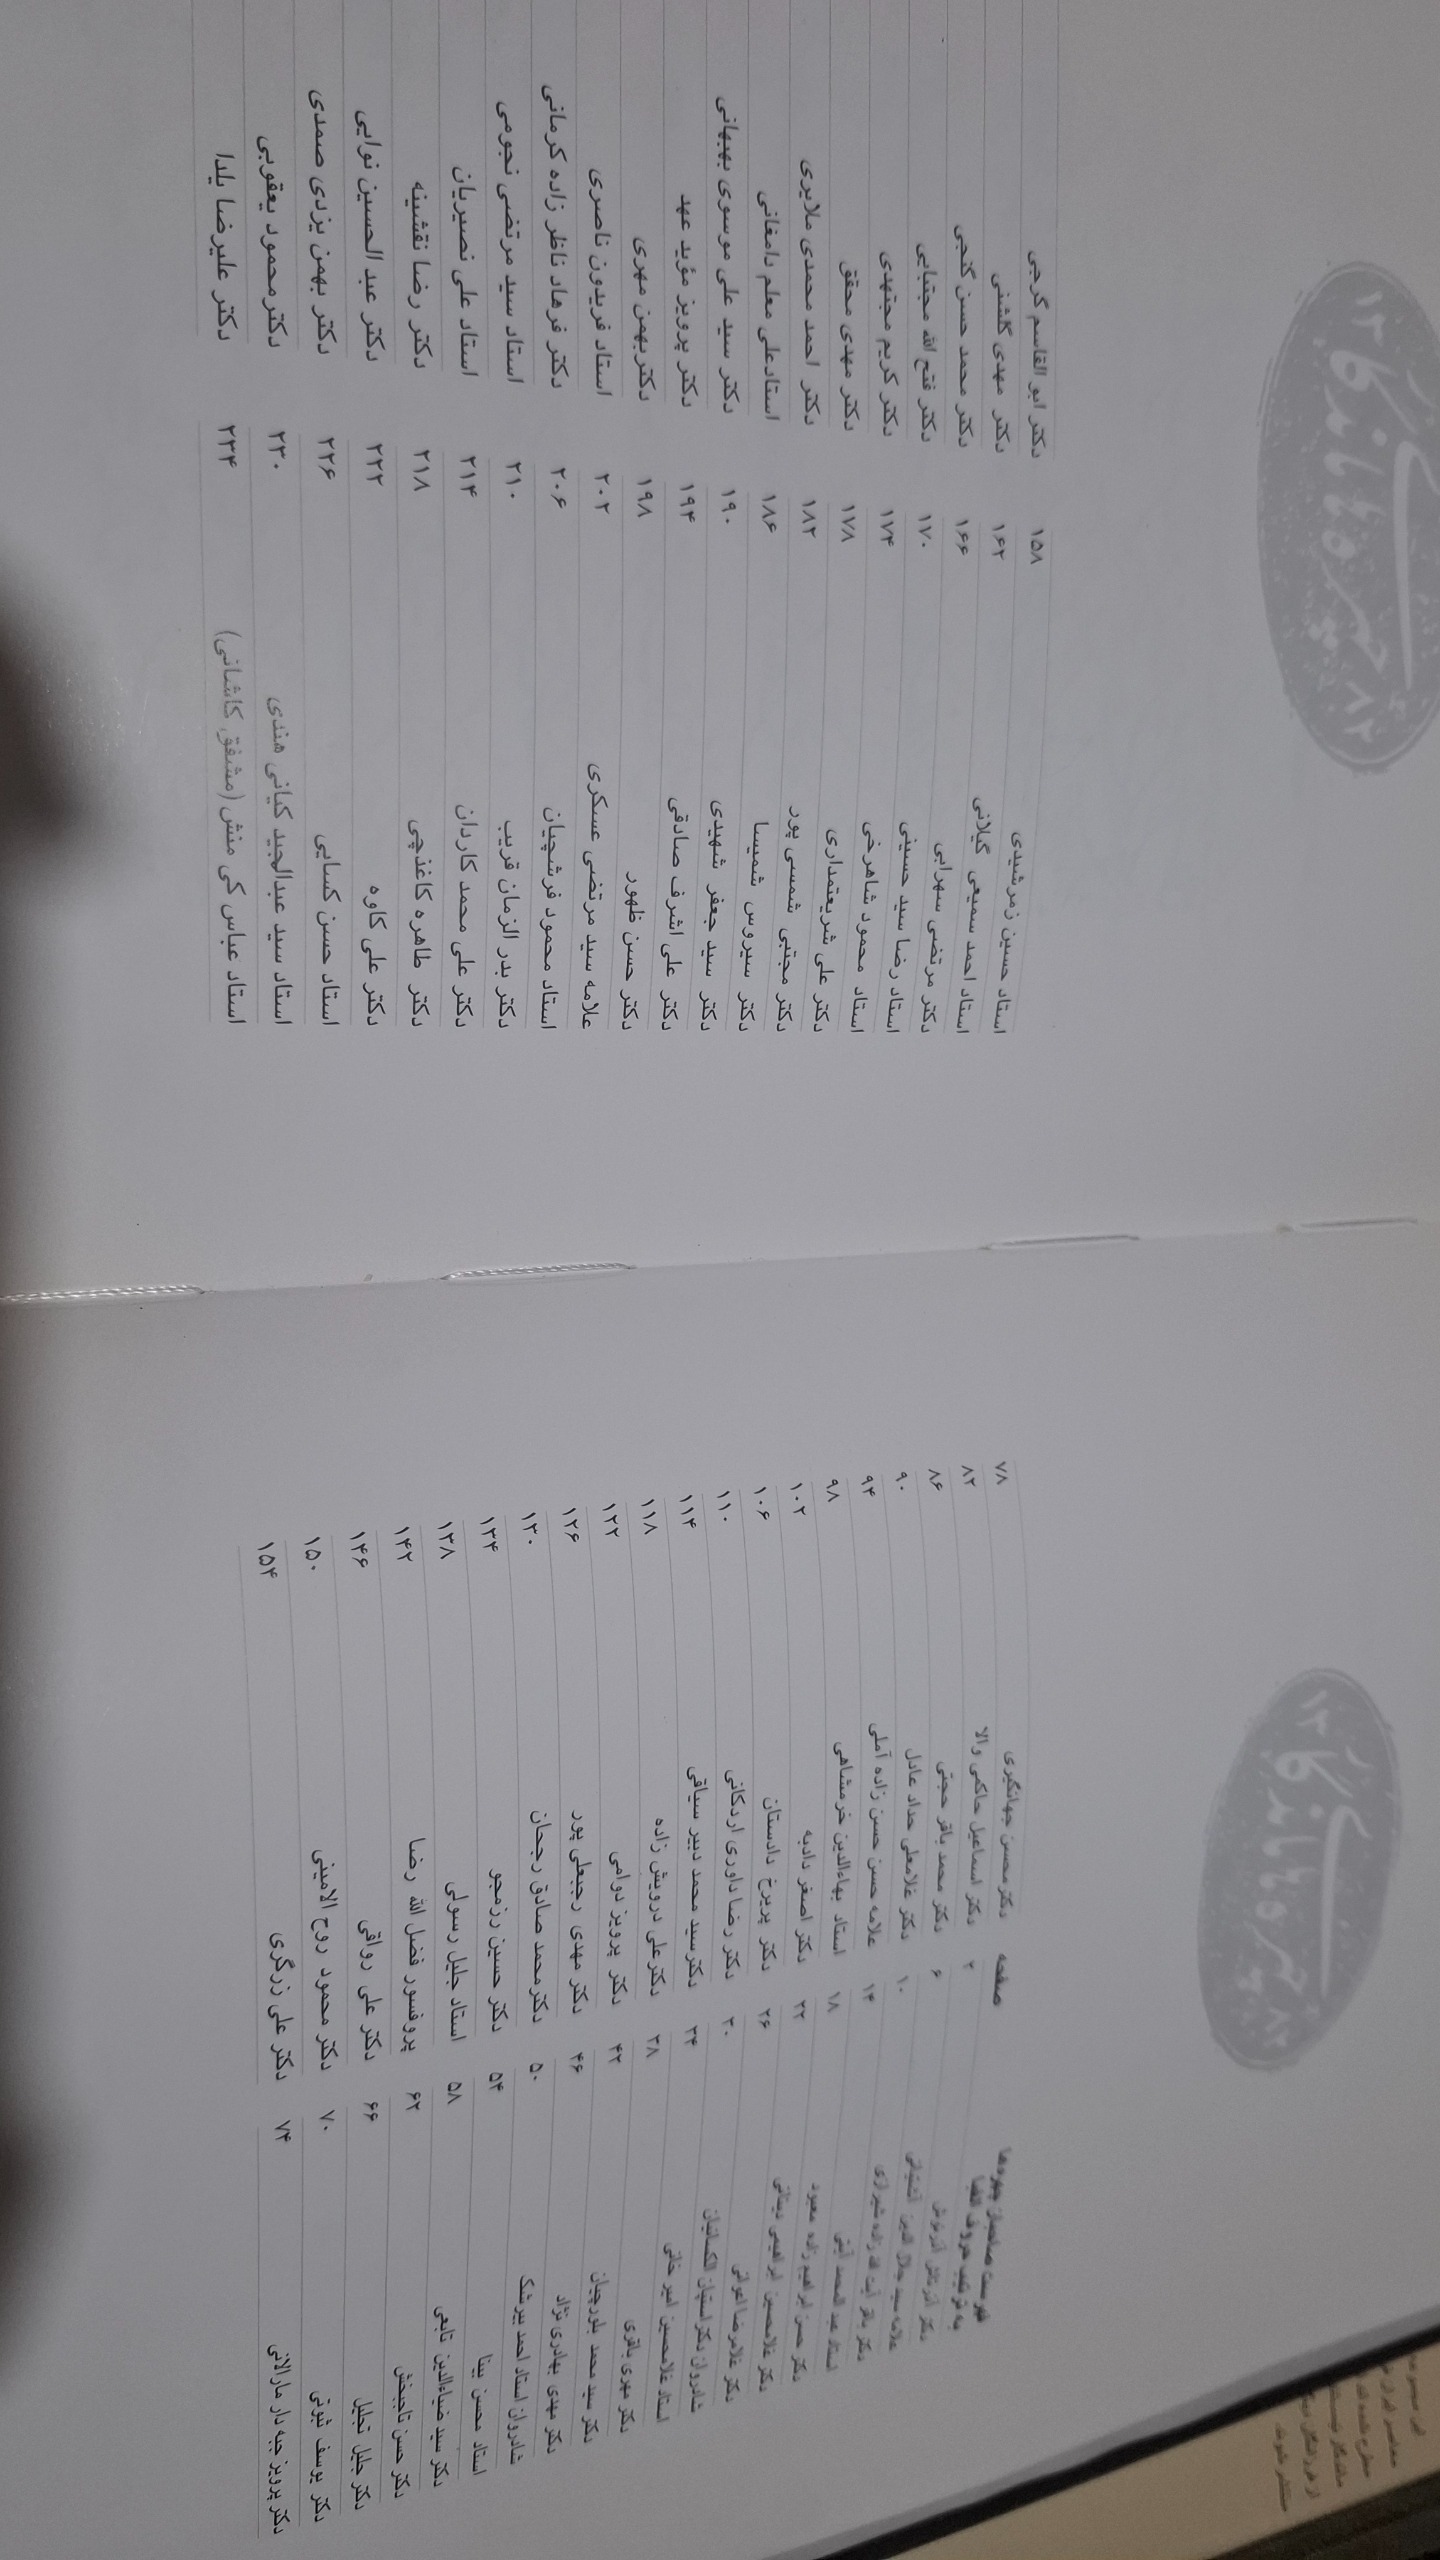 چهره‌های ماندگار
۱۳ ۸۲
فهرست صاحبان چهره‌ها
به ترتیب حروف الفبا
صفحه
دکتر آذرتاش آذرنوش ۲
علامه سید جلال الدین آشتیانی ۶
دکتر باقر آیت الله زاده شیرازی ۱۰
استاد عبدالمحمد آیتی ۱۴
دکتر حسن ابراهیم زاده معبود ۱۸
دکتر غلامحسین ابراهیمی دینانی ۲۲
دکتر غلامرضا اعوانی ۲۶
شادروان دکتر استپان الکسانیان ۳۰
استاد غلامحسین امیرخانی ۳۴
دکتر مهری باقری ۳۸
دکتر سید محمد بلورچیان ۴۲
دکتر مهدی بهادری نژاد ۴۶
شادروان استاد احمد بیرشک ۵۰
استاد محسن بینا ۵۴
دکتر سید ضیاءالدین تابعی ۵۸
دکتر حسن تاجبخش ۶۲
دکتر جلیل تجلیل ۶۶
دکتر یوسف ثبوتی ۷۰
دکتر پرویز جبه دار مارالانی ۷۴
دکتر محسن جهانگیری ۷۸
دکتر اسماعیل حاکمی والا ۸۲
دکتر محمد باقر حجتی ۸۶
دکتر غلامعلی حداد عادل ۹۰
علامه حسن حسن زاده آملی ۹۴
استاد بهاءالدین خرمشاهی ۹۸
دکتر اصغر دادبه ۱۰۲
دکتر پریرخ دادستان ۱۰۶
دکتر رضا داوری اردکانی ۱۱۰
دکتر سید محمد دبیر سیاقی ۱۱۴
دکتر علی درویش زاده ۱۱۸
دکتر پرویز دوامی ۱۲۲
دکتر مهدی رجبعلی پور ۱۲۶
دکتر محمد صادق رجحان ۱۳۰
دکتر حسین رزمجو ۱۳۴
استاد جلیل رسولی ۱۳۸
پروفسور فضل الله رضا ۱۴۲
دکتر علی رواقی ۱۴۶
دکتر محمود روح الامینی ۱۵۰
دکتر علی زرگری ۱۵۴
چهره‌های ماندگار
۱۳ ۸۲
استاد حسین زمرشیدی ۱۵۸
استاد احمد سمیعی گیلانی ۱۶۲
دکتر مرتضی سهرابی ۱۶۶
استاد رضا سید حسینی ۱۷۰
استاد محمود شاهرخی ۱۷۴
دکتر علی شریعتمداری ۱۷۸
دکتر مجتبی شمسی پور ۱۸۲
دکتر سیروس شمیسا ۱۸۶
دکتر سید جعفر شهیدی ۱۹۰
دکتر علی اشرف صادقی ۱۹۴
دکتر حسن ظهور ۱۹۸
علامه سید مرتضی عسکری ۲۰۲
استاد محمود فرشچیان ۲۰۶
دکتر بدر الزمان قریب ۲۱۰
دکتر علی محمد کاردان ۲۱۴
دکتر طاهره کاغذچی ۲۱۸
دکتر علی کاوه ۲۲۲
استاد حسن کسایی ۲۲۶
استاد سید عبدالمجید کیانی هندی ۲۳۰
استاد عباس کی منش (مشفق کاشانی) ۲۳۴
دکتر ابو القاسم گرجی
دکتر مهدی گلشنی
دکتر محمد حسن گنجی
دکتر فتح الله مجتبایی
دکتر کریم مجتهدی
دکتر مهدی محقق
دکتر احمد محمدی ملایری
استاد علی معلم دامغانی
دکتر سید علی موسوی بهبهانی
دکتر پرویز مؤید عهد
دکتر بهمن مهری
استاد فریدون ناصری
دکتر فرهاد ناظر زاده کرمانی
استاد سید مرتضی نجومی
استاد علی نصیریان
دکتر رضا نقشینه
دکتر عبد الحسین نوایی
دکتر بهمن یزدی صمدی
دکتر محمود یعقوبی
دکتر علیرضا یلدا